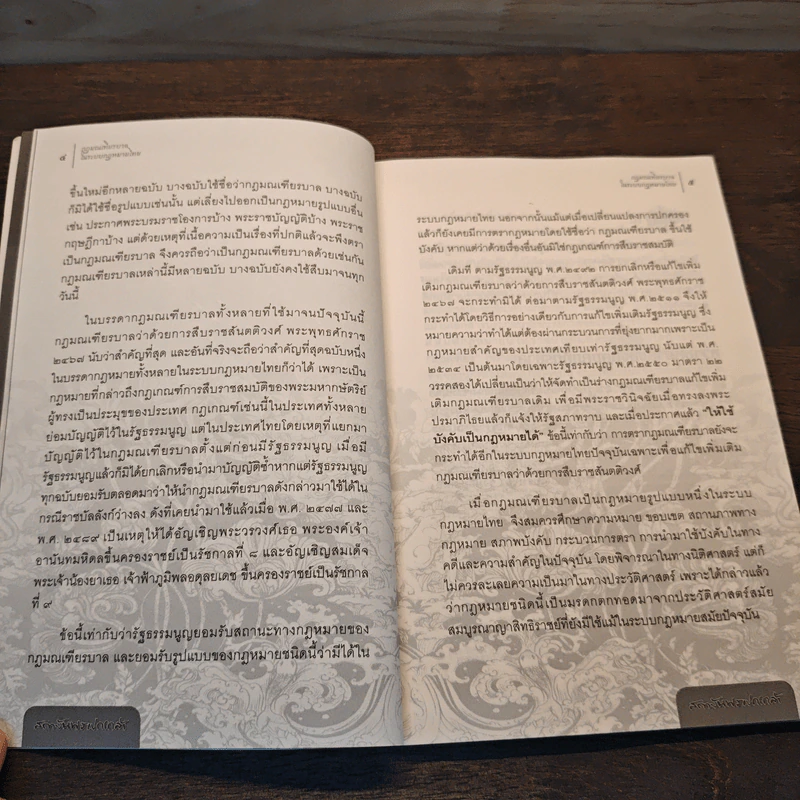 ๔
กฎมณเฑียรบาล
ในระบบกฎหมายไทย
ขึ้นใหม่อีกหลายฉบับ บางฉบับใช้ชื่อว่ากฎมณเฑียรบาล บางฉบับ
ก็มิได้ใช้ชื่อรูปแบบเช่นนั้น แต่เลี่ยงไปออกเป็นกฎหมายรูปแบบอื่น
เช่น ประกาศพระบรมราชโองการบ้าง พระราชบัญญัติบ้าง พระราช
กฤษฎีกาบ้าง แต่ด้วยเหตุที่เนื้อความเป็นเรื่องที่ปกติแล้วจะพึงตรา
เป็นกฎมณเฑียรบาล จึงควรถือว่าเป็นกฎมณเฑียรบาลด้วยเช่นกัน
กฎมณเฑียรบาลเหล่านี้มีหลายฉบับ บางฉบับยังคงใช้สืบมาจนทุก
วันนี้
ในบรรดากฎมณเฑียรบาลทั้งหลายที่ใช้มาจนปัจจุบันนี้
กฎมณเฑียรบาลว่าด้วยการสืบราชสันตติวงศ์ พระพุทธศักราช
๒๔๖๗ นับว่าสำคัญที่สุด และอันที่จริงจะถือว่าสำคัญที่สุดฉบับหนึ่ง
ในบรรดากฎหมายทั้งหลายในระบบกฎหมายไทยก็ว่าได้ เพราะเป็น
กฎหมายที่กล่าวถึงกฎเกณฑ์การสืบราชสมบัติของพระมหากษัตริย์
ผู้ทรงเป็นประมุขของประเทศ กฎเกณฑ์เช่นนี้ในประเทศทั้งหลาย
ย่อมบัญญัติไว้ในรัฐธรรมนูญ แต่ในประเทศไทยโดยเหตุที่แยกมา
บัญญัติไว้ในกฎมณเฑียรบาลตั้งแต่ก่อนมีรัฐธรรมนูญ เมื่อมี
รัฐธรรมนูญแล้วก็มิได้ยกเลิกหรือนำมาบัญญัติซ้ำหากแต่รัฐธรรมนูญ
ทุกฉบับยอมรับตลอดมาว่าให้นำกฎมณเฑียรบาลดังกล่าวมาใช้ได้ใน
กรณีราชบัลลังก์ว่างลง ดังที่เคยนำมาใช้แล้วเมื่อ พ.ศ. ๒๔๗๗ และ
พ.ศ. ๒๔๘๙ เป็นเหตุให้ได้อัญเชิญพระวรวงศ์เธอ พระองค์เจ้า
อานันทมหิดลขึ้นครองราชย์เป็นรัชกาลที่ ๘ และอัญเชิญสมเด็จ
พระเจ้าน้องยาเธอ เจ้าฟ้าภูมิพลอดุลยเดช ขึ้นครองราชย์เป็นรัชกาล
ที่ ๙
ข้อนี้เท่ากับว่ารัฐธรรมนูญยอมรับสถานะทางกฎหมายของ
กฎมณเฑียรบาล และยอมรับรูปแบบของกฎหมายชนิดนี้ว่ามีได้ใน
สถาบันพระปกเกล้า
กฎมณเฑียรบาล
ในระบบกฎหมายไทย
๕
ระบบกฎหมายไทย นอกจากนั้นแม้แต่เมื่อเปลี่ยนแปลงการปกครอง
แล้วก็ยังเคยมีการตรากฎหมายโดยใช้ชื่อว่า กฎมณเฑียรบาล ขึ้นใช้
บังคับ หากแต่ว่าด้วยเรื่องอื่นอันมิใช่กฎเกณฑ์การสืบราชสมบัติ
เดิมที ตามรัฐธรรมนูญ พ.ศ.๒๔๙๒ การยกเลิกหรือแก้ไขเพิ่ม
เติมกฎมณเฑียรบาลว่าด้วยการสืบราชสันตติวงศ์ พระพุทธศักราช
๒๔๖๗ จะกระทำมิได้ ต่อมาตามรัฐธรรมนูญ พ.ศ.๒๕๑๑ จึงให้
กระทำได้โดยวิธีการอย่างเดียวกับการแก้ไขเพิ่มเติมรัฐธรรมนูญ ซึ่ง
หมายความว่าทำได้แต่ต้องผ่านกระบวนการที่ยุ่งยากมากเพราะเป็น
กฎหมายสำคัญของประเทศเทียบเท่ารัฐธรรมนูญ นับแต่ พ.ศ.
๒๕๓๔ เป็นต้นมาโดยเฉพาะรัฐธรรมนูญ พ.ศ.๒๕๕๐ มาตรา ๒๒
วรรคสองได้เปลี่ยนเป็นว่าให้จัดทำเป็นร่างกฎมณเฑียรบาลแก้ไขเพิ่ม
เติมกฎมณเฑียรบาลเดิม เพื่อมีพระราชวินิจฉัยเมื่อทรงลงพระ
ปรมาภิไธยแล้วก็แจ้งให้รัฐสภาทราบ และเมื่อประกาศแล้ว "ให้ใช้
บังคับเป็นกฎหมายได้" ข้อนี้เท่ากับว่า การตรากฎมณเฑียรบาลยังจะ
กระทำได้อีกในระบบกฎหมายไทยปัจจุบันเฉพาะเพื่อแก้ไขเพิ่มเติม
กฎมณเฑียรบาลว่าด้วยการสืบราชสันตติวงศ์
เมื่อกฎมณเฑียรบาลเป็นกฎหมายรูปแบบหนึ่งในระบบ
กฎหมายไทย จึงสมควรศึกษาความหมาย ขอบเขต สถานภาพทาง
กฎหมาย สภาพบังคับ กระบวนการตรา การนำมาใช้บังคับในทาง
คดีและความสำคัญในปัจจุบัน โดยพิจารณาในทางนิติศาสตร์ แต่ก็
ไม่ควรละเลยความเป็นมาในทางประวัติศาสตร์ เพราะได้กล่าวแล้ว
ว่ากฎหมายชนิดนี้เป็นมรดกตกทอดมาจากประวัติศาสตร์สมัย
สมบูรณาญาสิทธิราชย์ที่ยังมีใช้แม้ในระบบกฎหมายสมัยปัจจุบัน
สถาบันพระปกเกล้า